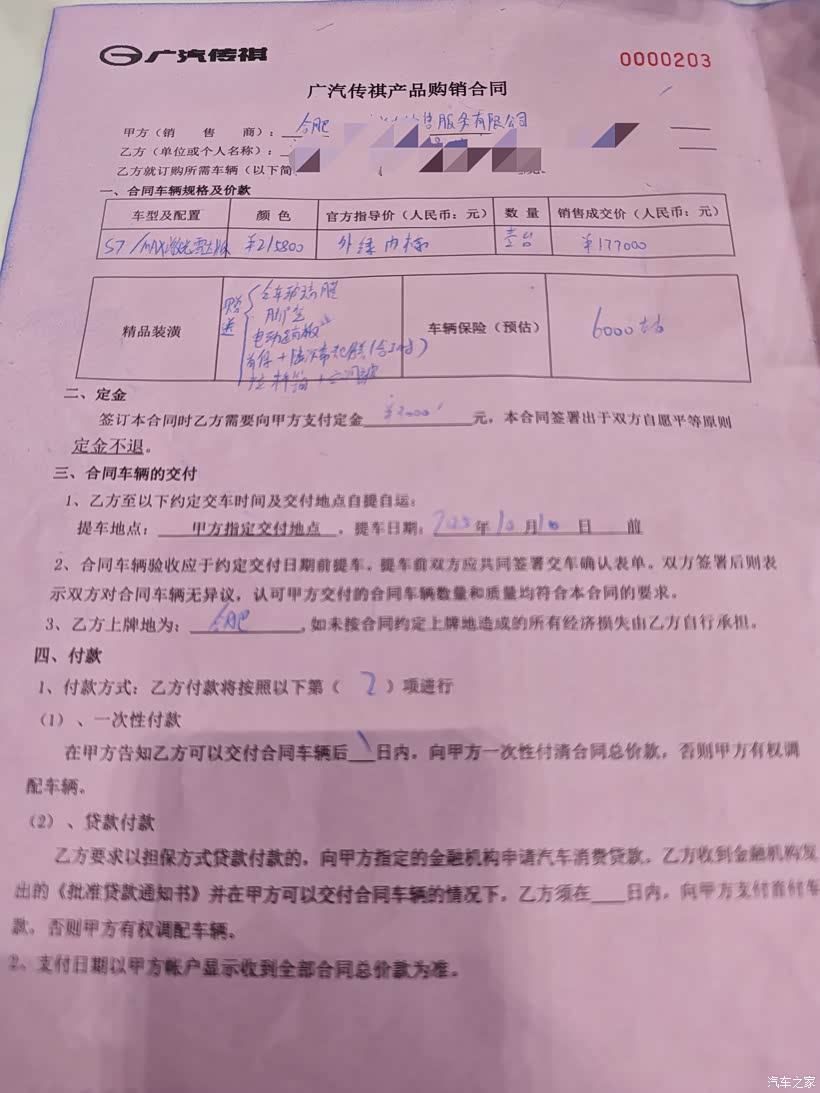 广汽传祺
0000203
广汽传祺产品购销合同
甲方（销 售 商）：合肥 售服务有限公司
乙方（单位或个人名称）：
乙方就订购所需车辆（以下简
一、合同车辆规格及价款
车型及配置 颜 色 官方指导价（人民币：元） 数 量 销售成交价（人民币：元）
S7/MAX激光雷达版 ¥215800 外绿内棕 壹台 ¥177000
精品装潢 赠送 全车 膜 车辆保险（预估） 6000左右
脚垫
电动踏板
二、定金
签订本合同时乙方需要向甲方支付定金¥2000元，本合同签署出于双方自愿平等原则
定金不退。
三、合同车辆的交付
1、乙方至以下约定交车时间及交付地点自提自运：
提车地点： 甲方指定交付地点 ，提车日期：年10月10日 前
2、合同车辆验收应于约定交付日期前提车。提车前双方应共同签署交车确认表单。双方签署后则表
示双方对合同车辆无异议，认可甲方交付的合同车辆数量和质量均符合本合同的要求。
3、乙方上牌地为：合肥，如未按合同约定上牌地造成的所有经济损失由乙方自行承担。
四、付款
1、付款方式：乙方付款将按照以下第（ 2 ）项进行
（1）、一次性付款
在甲方告知乙方可以交付合同车辆后___日内，向甲方一次性付清合同总价款，否则甲方有权调
配车辆。
（2）、贷款付款
乙方要求以担保方式贷款付款的，向甲方指定的金融机构申请汽车消费贷款。乙方收到金融机构发
出的《批准贷款通知书》并在甲方可以交付合同车辆的情况下，乙方须在___日内，向甲方支付首付车
款，否则甲方有权调配车辆。
2、支付日期以甲方帐户显示收到全部合同总价款为准。
汽车之家